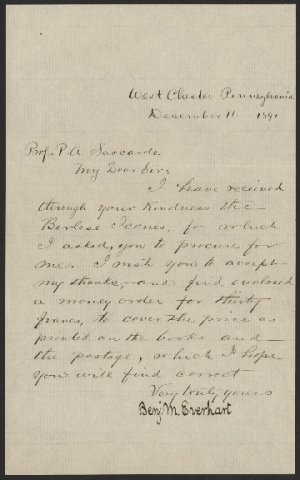 West Chester Pennsylvania
December 11. 1891
Prof. P A Saccardo.
My Dear Sir:
I have received
through your kindness the
Berlese Icones, for which
I asked, you to procure for
me. I wish you to accept
my thanks, and find enclosed
a money order for thirty
francs, to cover the price as
printed on the books and
the postage, which I hope
you will find correct
Very truly yours
Benj. M. Everhart